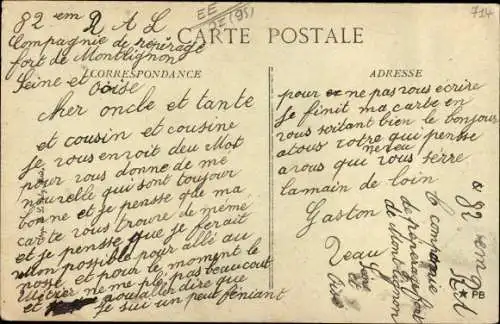 EE
DE (95)
714
82 em R A L
Compagnie de repérage
fort de Montlignon
Seine et Oise
CARTE POSTALE
CORRESPONDANCE
ADRESSE
Cher oncle et tante
et cousin et cousine
Je vous envoit deu Mot
pour vous donne de mé
nouvelle qui sont toujour
bonne et je pensse que ma
carte vous trouve de même
et je pensse que je ferait
Mon possible pour allé au
nosse et pour le moment le
Métier ne me plé pas beaucout
et pou aller dire que
je sui un peut féniant
pour ne pas vous ecrire
Je finit ma carte en
vous soitant bien le bonjour
a tous votre neveu qui pensse
a vous qui vous serre
la main de loin
Gaston
82 em
R A L
de repérage
de Montlignon
Seine
et
Oise
PB